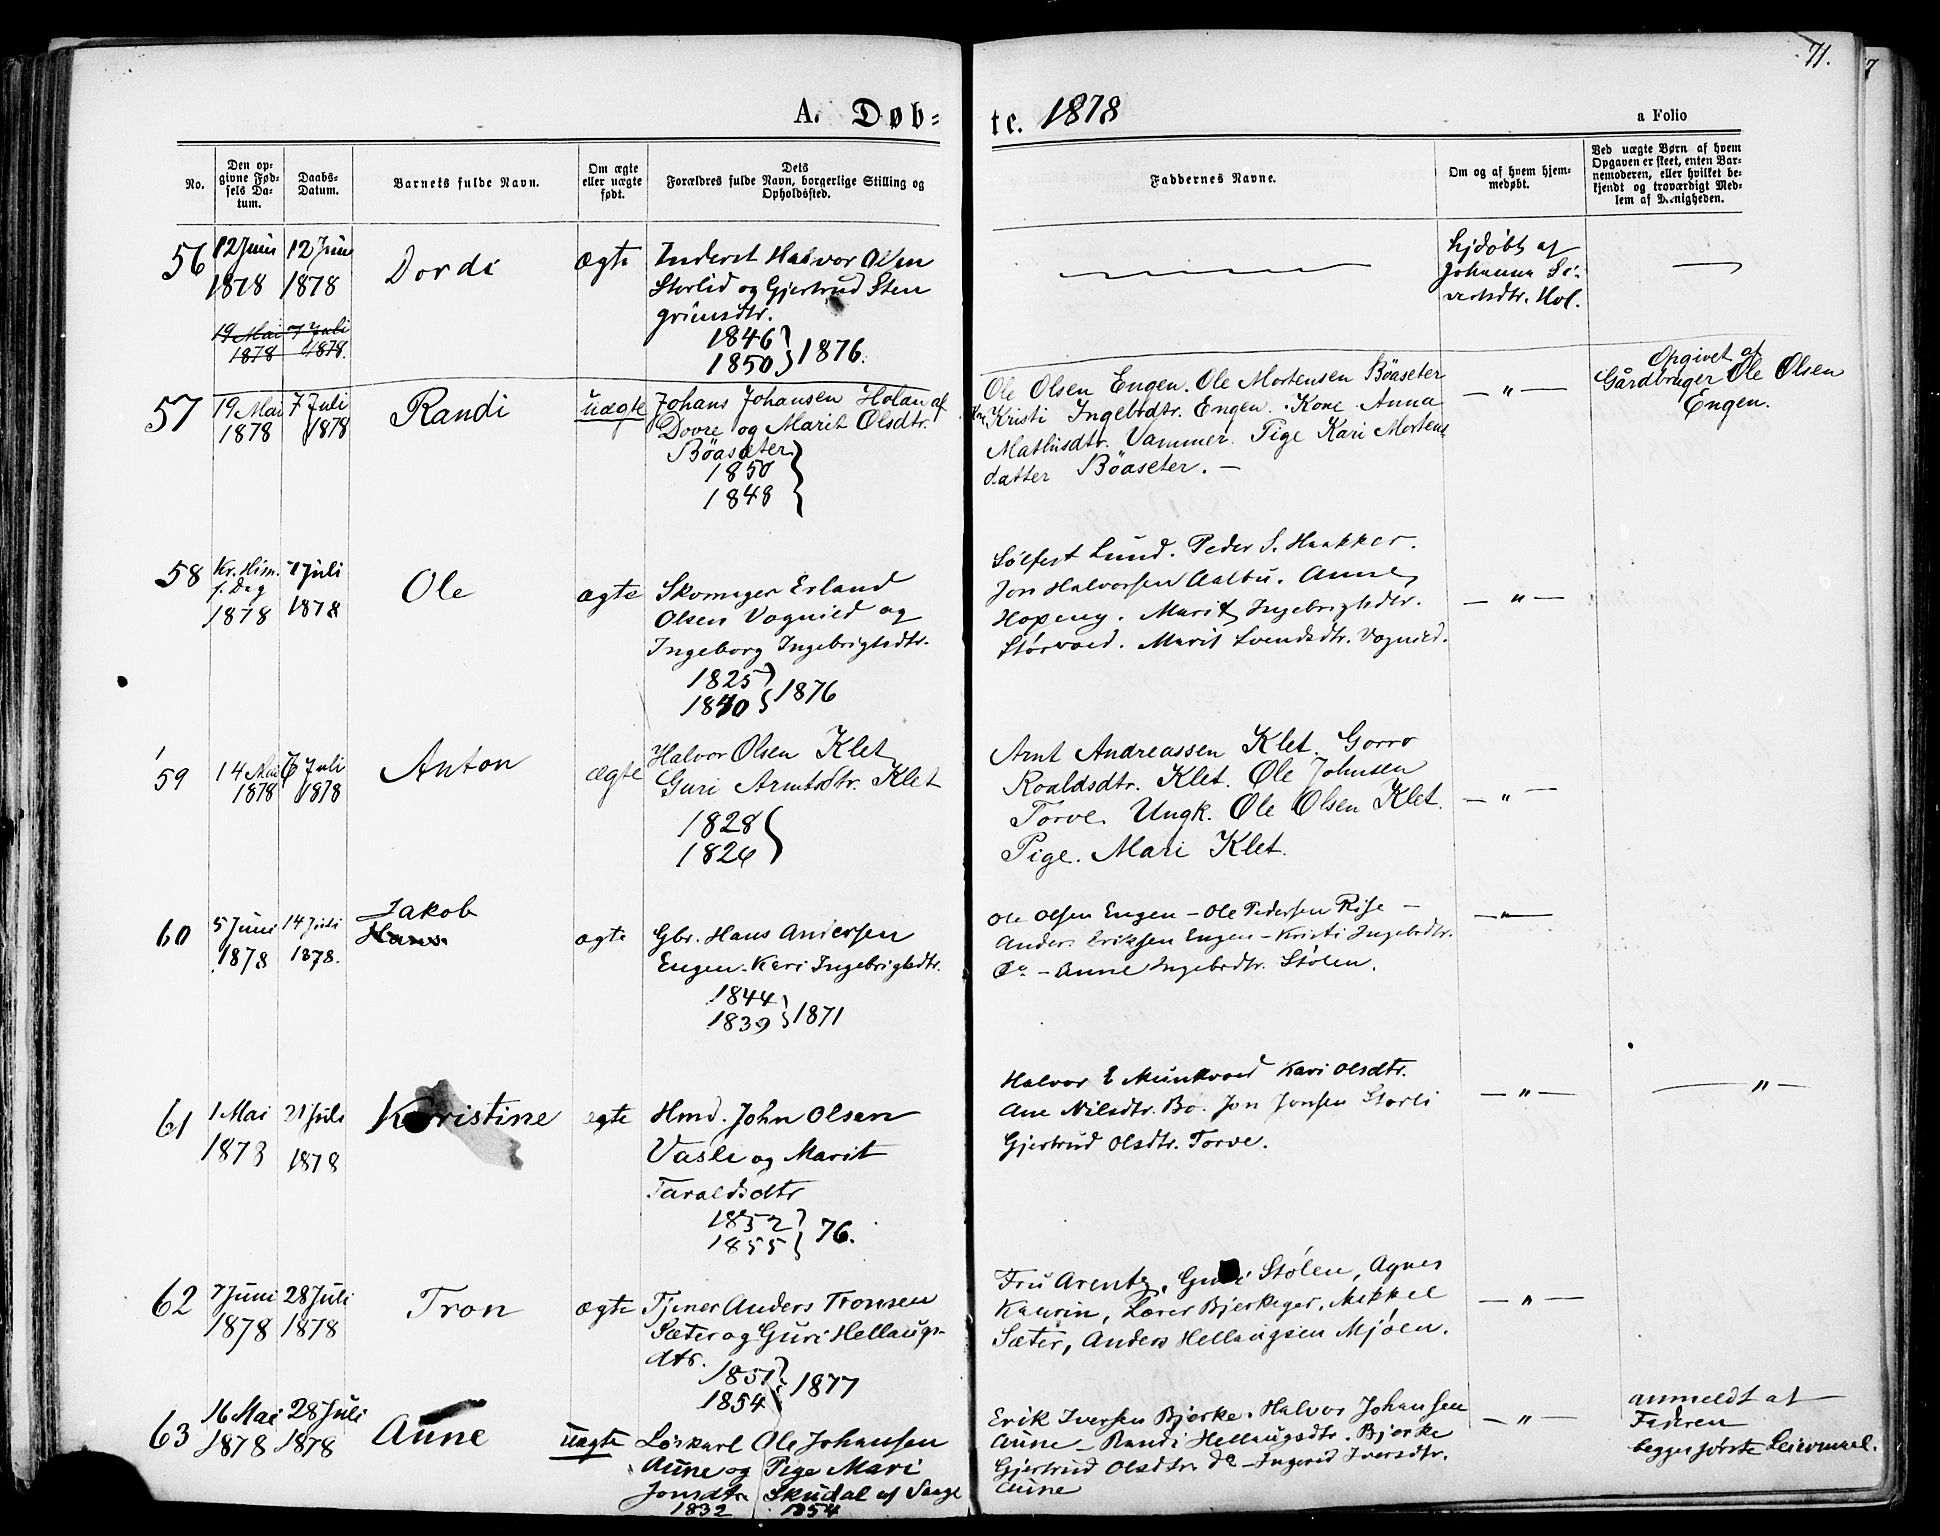 71.
7
A. Døb-
te. 1878
a Folio
No.
Den op-
givne Fød-
sels Da-
tum.
Daabs-
Datum.
Barnets fulde Navn.
Om ægte
eller uægte
født.
Dets
Forældres fulde Navn, borgerlige Stilling og
Opholdssted.
Faddernes Navne.
Om og af hvem hjem-
medøbt.
Ved uægte Børn af hvem
Opgaven er skeet, enten Bar-
nemoderen, eller hvilket be-
kjendt og troværdigt Med-
lem af Menigheden.
56
12 Juni
1878
12 Juni
1878
19 Mai
1878
7 Juli
1878.
Dordi
ægte
Inderst Halvor Olsen
Storlid og Gjertrud Sten
grimsdtr.
1846
1850 } 1876.
hjdøbt af
Johanna Si-
vertsdtr. Hol.
57
19 Mai
1878
7 Juli
1878
Randi
uægte
Johans Johansen Holan af
Dovre og Marit Olsdtr.
Böaseter
1850
1848 }
Ole Olsen Engen. Ole Mortensen Böaseter
Kristi Ingebrdtr. Engen. Kone Anna
Mathisdtr. Vammer. Pige Kari Mortens
datter Böaseter. —
— " —
Opgivet af
Gårdbruger Ole Olsen
Engen.
58
Kr. Him.
f. Dag
1878
7 Juli
1878
Ole
ægte
Skomager Erland
Olsen Vognild og
Ingeborg Ingebrigtsdtr.
1825
1840 } 1876
Sølfest Lund. Peder S. Haakker.
Jon Halvorsen Aalbu. Anne
Hoxeng. Marit Ingebrigtsdtr.
Storvold. Marit Svendsdtr. Vognild.
— " —
59
14 Mai
1878
7 Juli
1878
Anton
ægte
Halvor Olsen Klet
Guri Arntsdtr. Klet
1828
1826 }
Arnt Andreassen Klet. Gorro
Roaldsdtr. Klet. Ole Johnsen
Torve. Ungk. Ole Olsen Klet.
Pige. Mari Klet.
— " —
60
5 Juni
1878
14 Juli
1878.
Jakob
Hans
ægte
Gbr. Hans Andersen
Engen. Kari Ingebrigtsdtr.
1844
1839 } 1871
Ole Olsen Engen — Ole Pedersen Rise —
Anders Eriksen Engen — Kristi Ingebrdtr.
do — Anne Ingebrdtr. Stølen.
— " —
61
1 Mai
1878
21 Juli
1878
Kristine
ægte
Hmd. John Olsen
Vasli og Marit
Taraldsdtr
1852
1855 } 76.
Halvor E Munkvold Kari Olsdtr.
Ane Nilsdtr. Bo. Jon Jonsen Storli
Gjertrud Olsdtr. Torve.
— " —
— " —
62
7 Juni
1878
28 Juli
1878
Tron
ægte
Tjener Anders Tronsen
Sæter og Guri Hellaugs-
dtr.
1851
1854 } 1877
Fru Arentz, Guri Stølen, Agnes
Kaurin, Lærer Bjerkeger, Mikkel
Sæter, Anders Hellaugsen Mjøen.
— " —
63
16 Mai
1878
28 Juli
1878
Anne
uægte
Løskarl Ole Johansen
Aune og Pige Mari
Jonsdtr. Skudal af
1832 1854
Erik Iversen Bjerke. Halvor Johansen
Aune — Randi Hellaugsdtr. Bjerke
Gjertrud Olsdtr. do — Ingerid Iversdtr.
Aune
— " —
anmeldt af
Faderen
begges første Leiermaal.